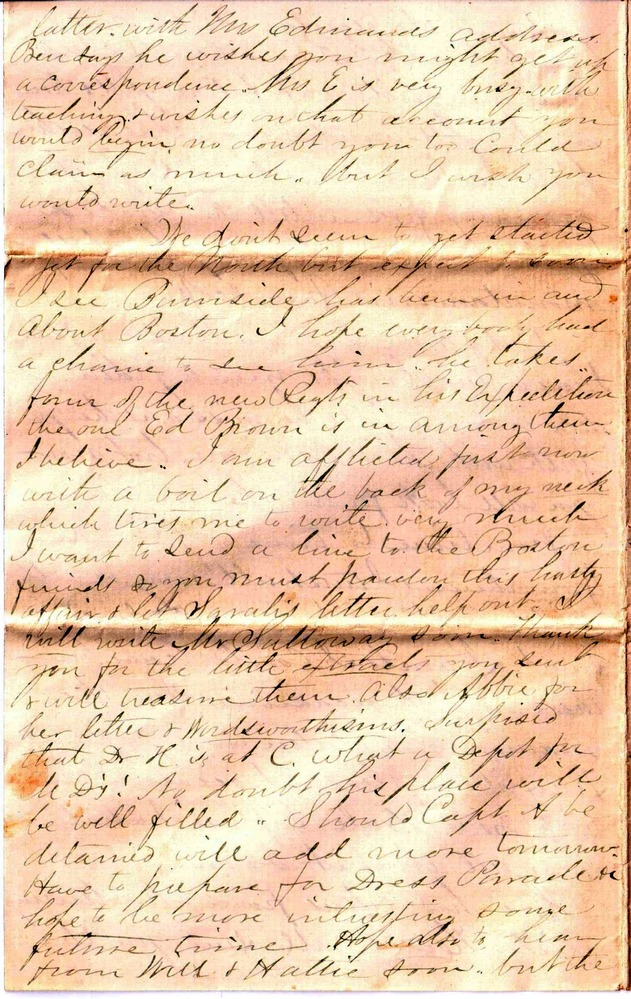 latter with Mrs Edmands address.
Ben says he wishes you might get up
a correspondence. Mrs E is very busy with
teaching & wishes on that account you
would begin, no doubt you too could
claim as much, but I wish you
would write.
We don't seem to get started
yet for the North but expect to soon
I see Burnside has been in and
About Boston. I hope everybody had
a chance to see him. he takes
four of the new Regts in his Expedition
the one Ed Brown is in among them
I believe.. I am afflicted just now
with a boil on the back of my neck
which tires me to write very much
I want to send a line to the Boston
friends so you must pardon this hasty
affair & let Sarah's letter help out. I
will write Mr Salloway soon. Thank
you for the little extracts you sent
& will treasure them. Also Abbie for
her letter & Wordsworthisms. Surprised
that Dr H is at C. what a Depot for
de Drs! No doubt his place will
be well filled.. Should Capt A be
detained will add more tomorrow.
Have to prepare for Dress Parade &
hope to be more interesting some
future time. Hope also to hear
from Will & Hattie soon.. but the